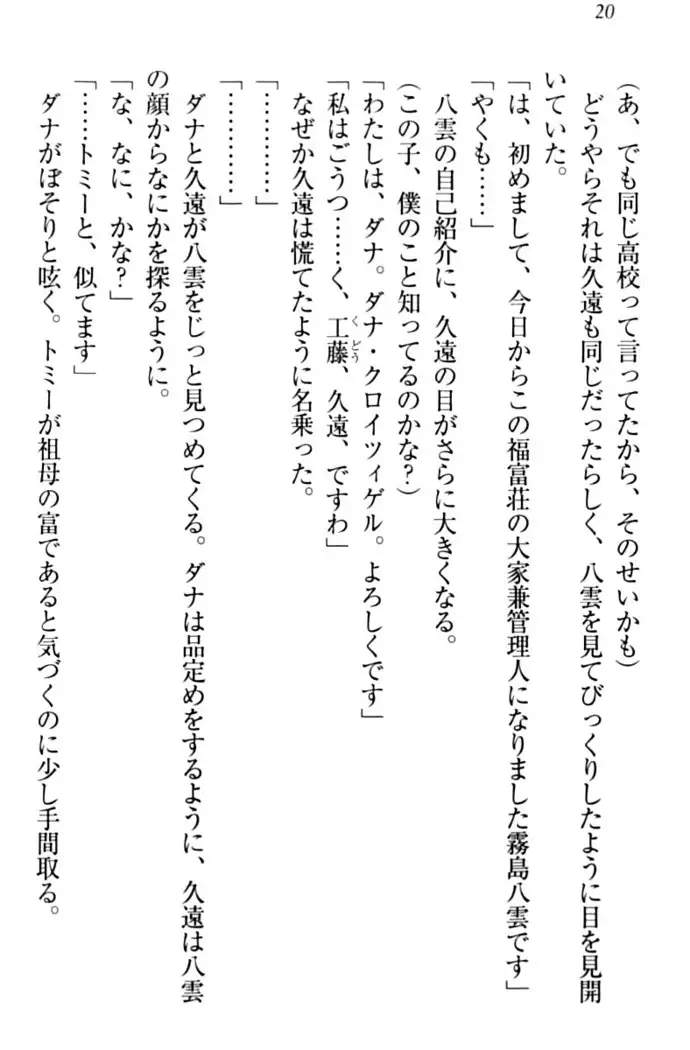 20
(あ、でも同じ高校って言ってたから、そのせいかも)
どうやらそれは久遠も同じだったらしく、八雲を見てびっくりしたように目を見開
いていた。
「は、初めまして、今日からこの福富荘の大家兼管理人になりました霧島八雲です」
「やくも……」
八雲の自己紹介に、久遠の目がさらに大きくなる。
(この子、僕のこと知ってるのかな?)
「わたしは、ダナ。ダナ・クロイツィゲル。よろしくです」
「私はごうつ……く、工藤、久遠、ですわ」
くどう
なぜか久遠は慌てたように名乗った。
「…………」
「…………」
ダナと久遠が八雲をじっと見つめてくる。ダナは品定めをするように、久遠は八雲
の顔からなにかを探るように。
「な、なに、かな?」
「……トミーと、似てます」
ダナがぼそりと呟く。トミーが祖母の富であると気づくのに少し手間取る。